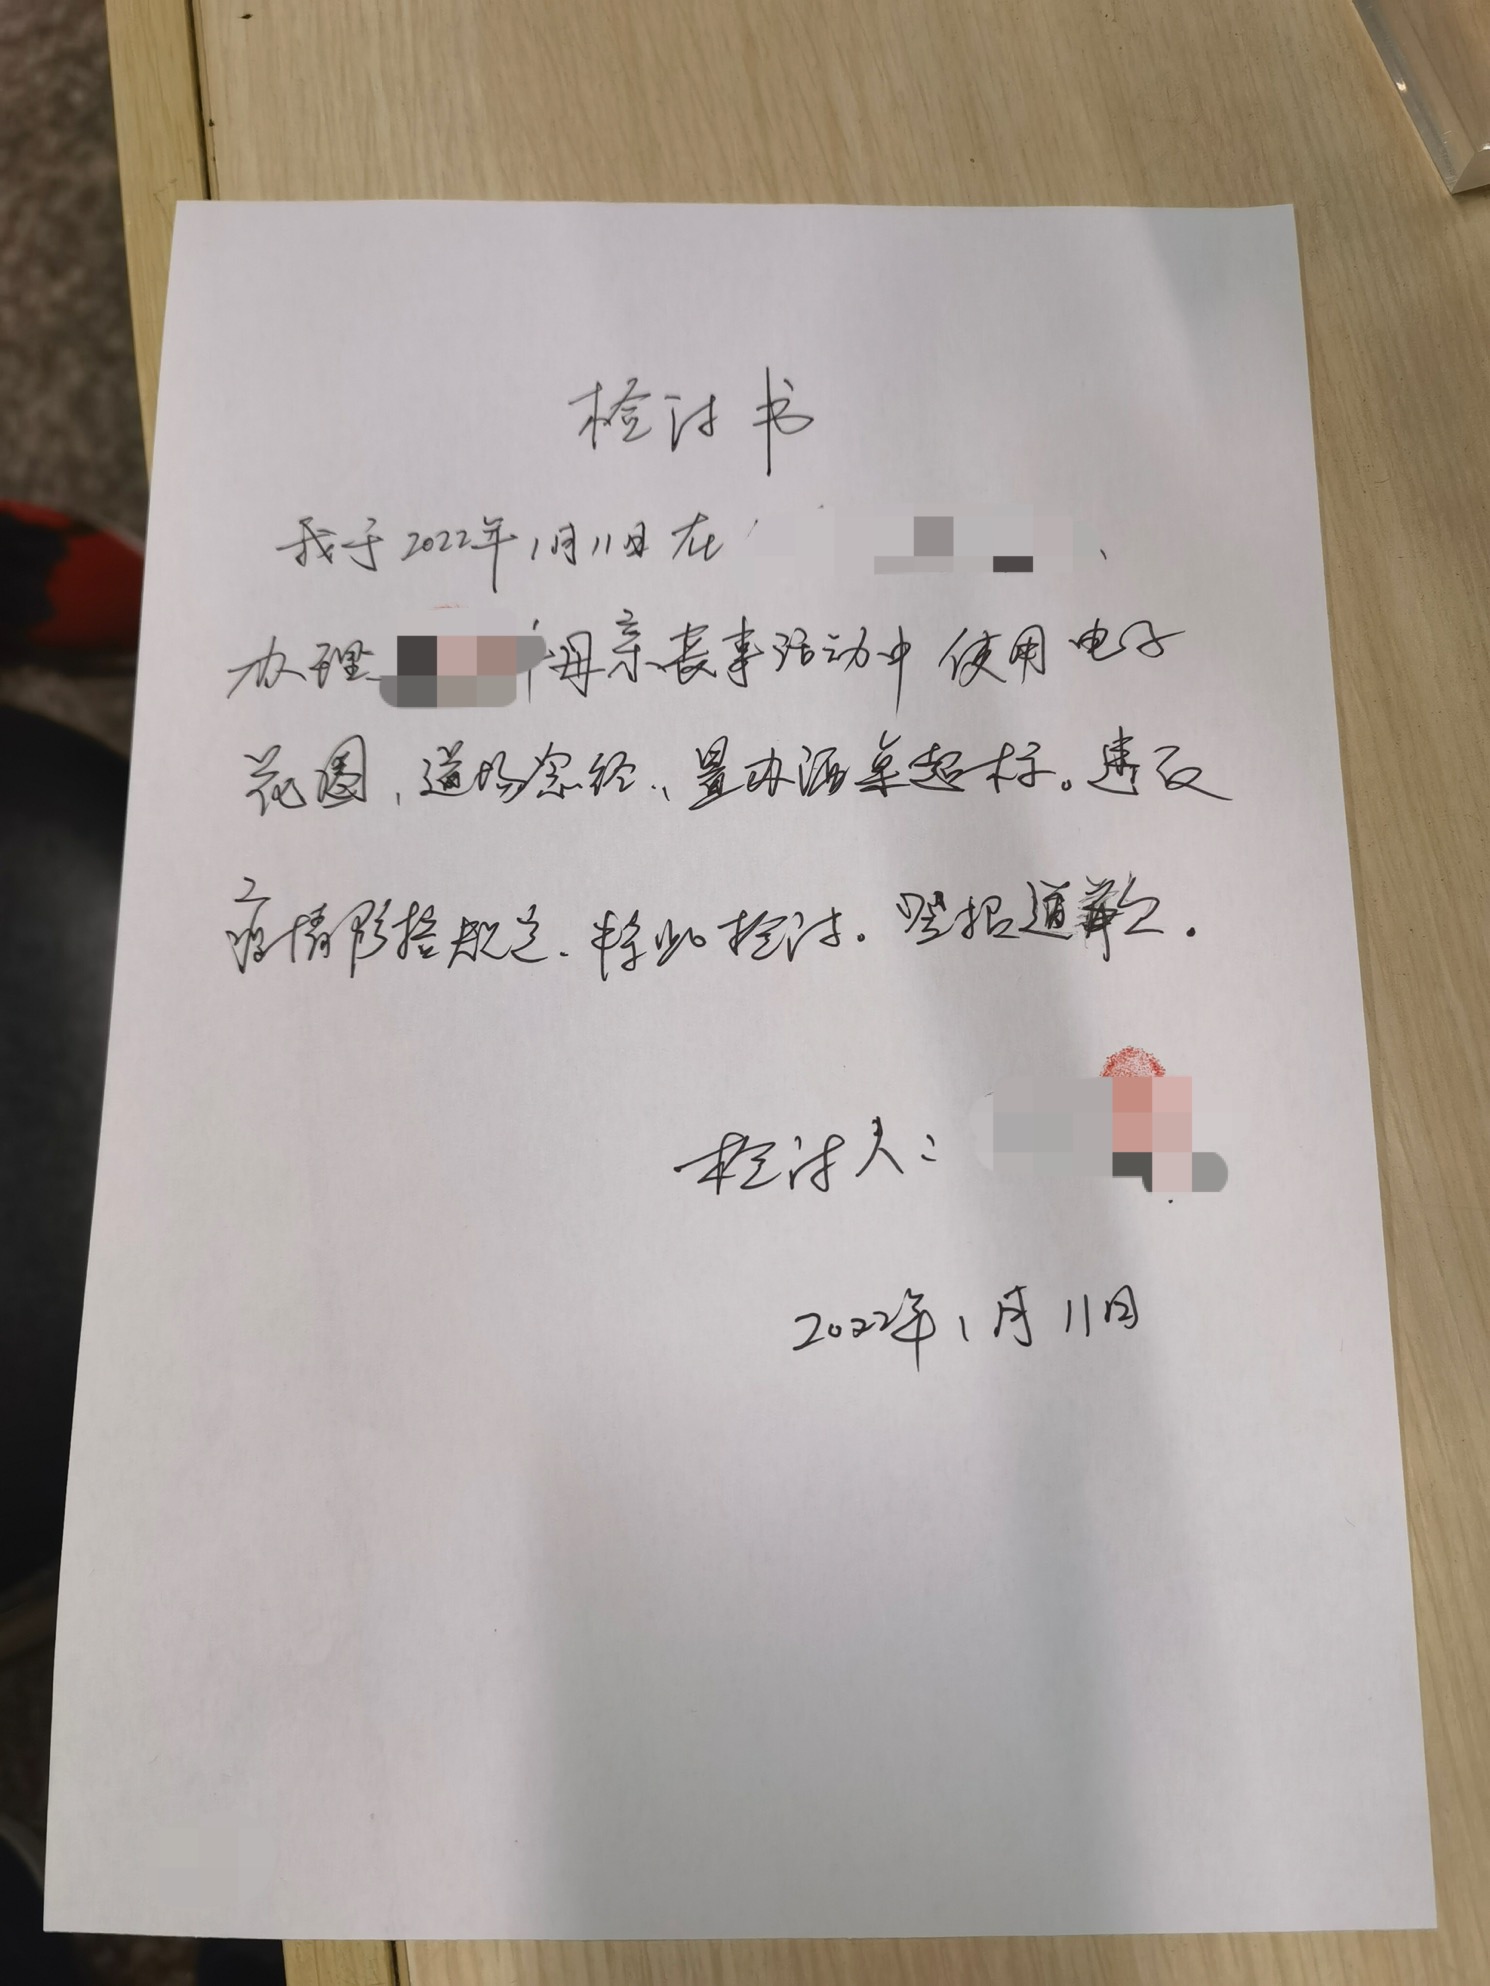 检讨书
我于2022年1月11日在
办理母亲丧事活动中使用电子
花圈，道场念经，置办酒桌超标。违反
疫情防控规定，特此检讨。登报道歉。
检讨人：
2022年1月11日